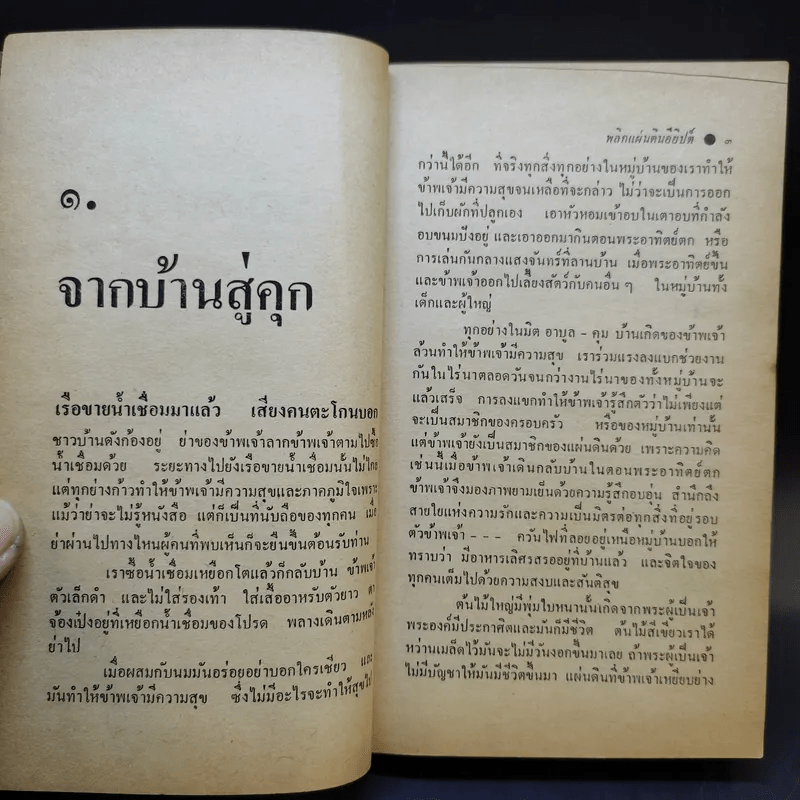 ๑.
จากบ้านสู่คุก
เรือขายน้ำเชื่อมมาแล้ว เสียงคนตะโกนบอก
ชาวบ้านดังก้องอยู่ ย่าของข้าพเจ้าลากข้าพเจ้าตามไปซื้อ
น้ำเชื่อมด้วย ระยะทางไปยังเรือขายน้ำเชื่อมนั้นไม่ไกล
แต่ทุกย่างก้าวทำให้ข้าพเจ้ามีความสุขและภาคภูมิใจเพราะ
แม้ว่าย่าจะไม่รู้หนังสือ แต่ก็เป็นที่นับถือของทุกคน เมื่อ
ย่าผ่านไปทางไหนผู้คนที่พบเห็นก็จะยืนขึ้นต้อนรับท่าน
เราซื้อน้ำเชื่อมเหยือกโตแล้วก็กลับบ้าน ข้าพเจ้า
ตัวเล็กดำ และไม่ใส่รองเท้า ใส่เสื้ออาหรับตัวยาว ตา
จ้องเป๋งอยู่ที่เหยือกน้ำเชื่อมของโปรด พลางเดินตามหลัง
ย่าไป
เมื่อผสมกับนมมันอร่อยอย่าบอกใครเชียว และ
มันทำให้ข้าพเจ้ามีความสุข ซึ่งไม่มีอะไรจะทำให้สุขไป
พลิกแผ่นดินอียิปต์ ● ๓
กว่านี้ได้อีก ที่จริงทุกสิ่งทุกอย่างในหมู่บ้านของเราทำให้
ข้าพเจ้ามีความสุขจนเหลือที่จะกล่าว ไม่ว่าจะเป็นการออก
ไปเก็บผักที่ปลูกเอง เอาหัวหอมเข้าอบในเตาอบที่กำลัง
อบขนมปังอยู่ และเอาออกมากินตอนพระอาทิตย์ตก หรือ
การเล่นกันกลางแสงจันทร์ที่ลานบ้าน เมื่อพระอาทิตย์ขึ้น
และข้าพเจ้าออกไปเลี้ยงสัตว์กับคนอื่น ๆ ในหมู่บ้านทั้ง
เด็กและผู้ใหญ่
ทุกอย่างในมิต อาบูล - คุม บ้านเกิดของข้าพเจ้า
ล้วนทำให้ข้าพเจ้ามีความสุข เราร่วมแรงลงแขกช่วยงาน
กันในไร่นาตลอดวันจนกว่างานไร่นาของทั้งหมู่บ้านจะ
แล้วเสร็จ การลงแขกทำให้ข้าพเจ้ารู้สึกตัวว่าไม่เพียงแต่
จะเป็นสมาชิกของครอบครัว หรือของหมู่บ้านเท่านั้น
แต่ข้าพเจ้ายังเป็นสมาชิกของแผ่นดินด้วย เพราะความคิด
เช่นนี้เมื่อข้าพเจ้าเดินกลับบ้านในตอนพระอาทิตย์ตก
ข้าพเจ้าจึงมองภาพยามเย็นด้วยความรู้สึกอบอุ่น สำนึกถึง
สายใยแห่งความรักและความเป็นมิตรต่อทุกสิ่งที่อยู่รอบ
ตัวข้าพเจ้า - - - ควันไฟที่ลอยอยู่เหนือหมู่บ้านบอกให้
ทราบว่า มีอาหารเลิศรสรออยู่ที่บ้านแล้ว และจิตใจของ
ทุกคนเต็มไปด้วยความสงบและสันติสุข
ต้นไม้ใหญ่มีพุ่มใบหนานั้นเกิดจากพระผู้เป็นเจ้า
พระองค์มีประกาศิตและมันก็มีชีวิต ต้นไม้สีเขียวเราได้
หว่านเมล็ดไว้มันจะไม่มีวันงอกขึ้นมาเลย ถ้าพระผู้เป็นเจ้า
ไม่มีบัญชาให้มันมีชีวิตขึ้นมา แผ่นดินที่ข้าพเจ้าเหยียบย่าง